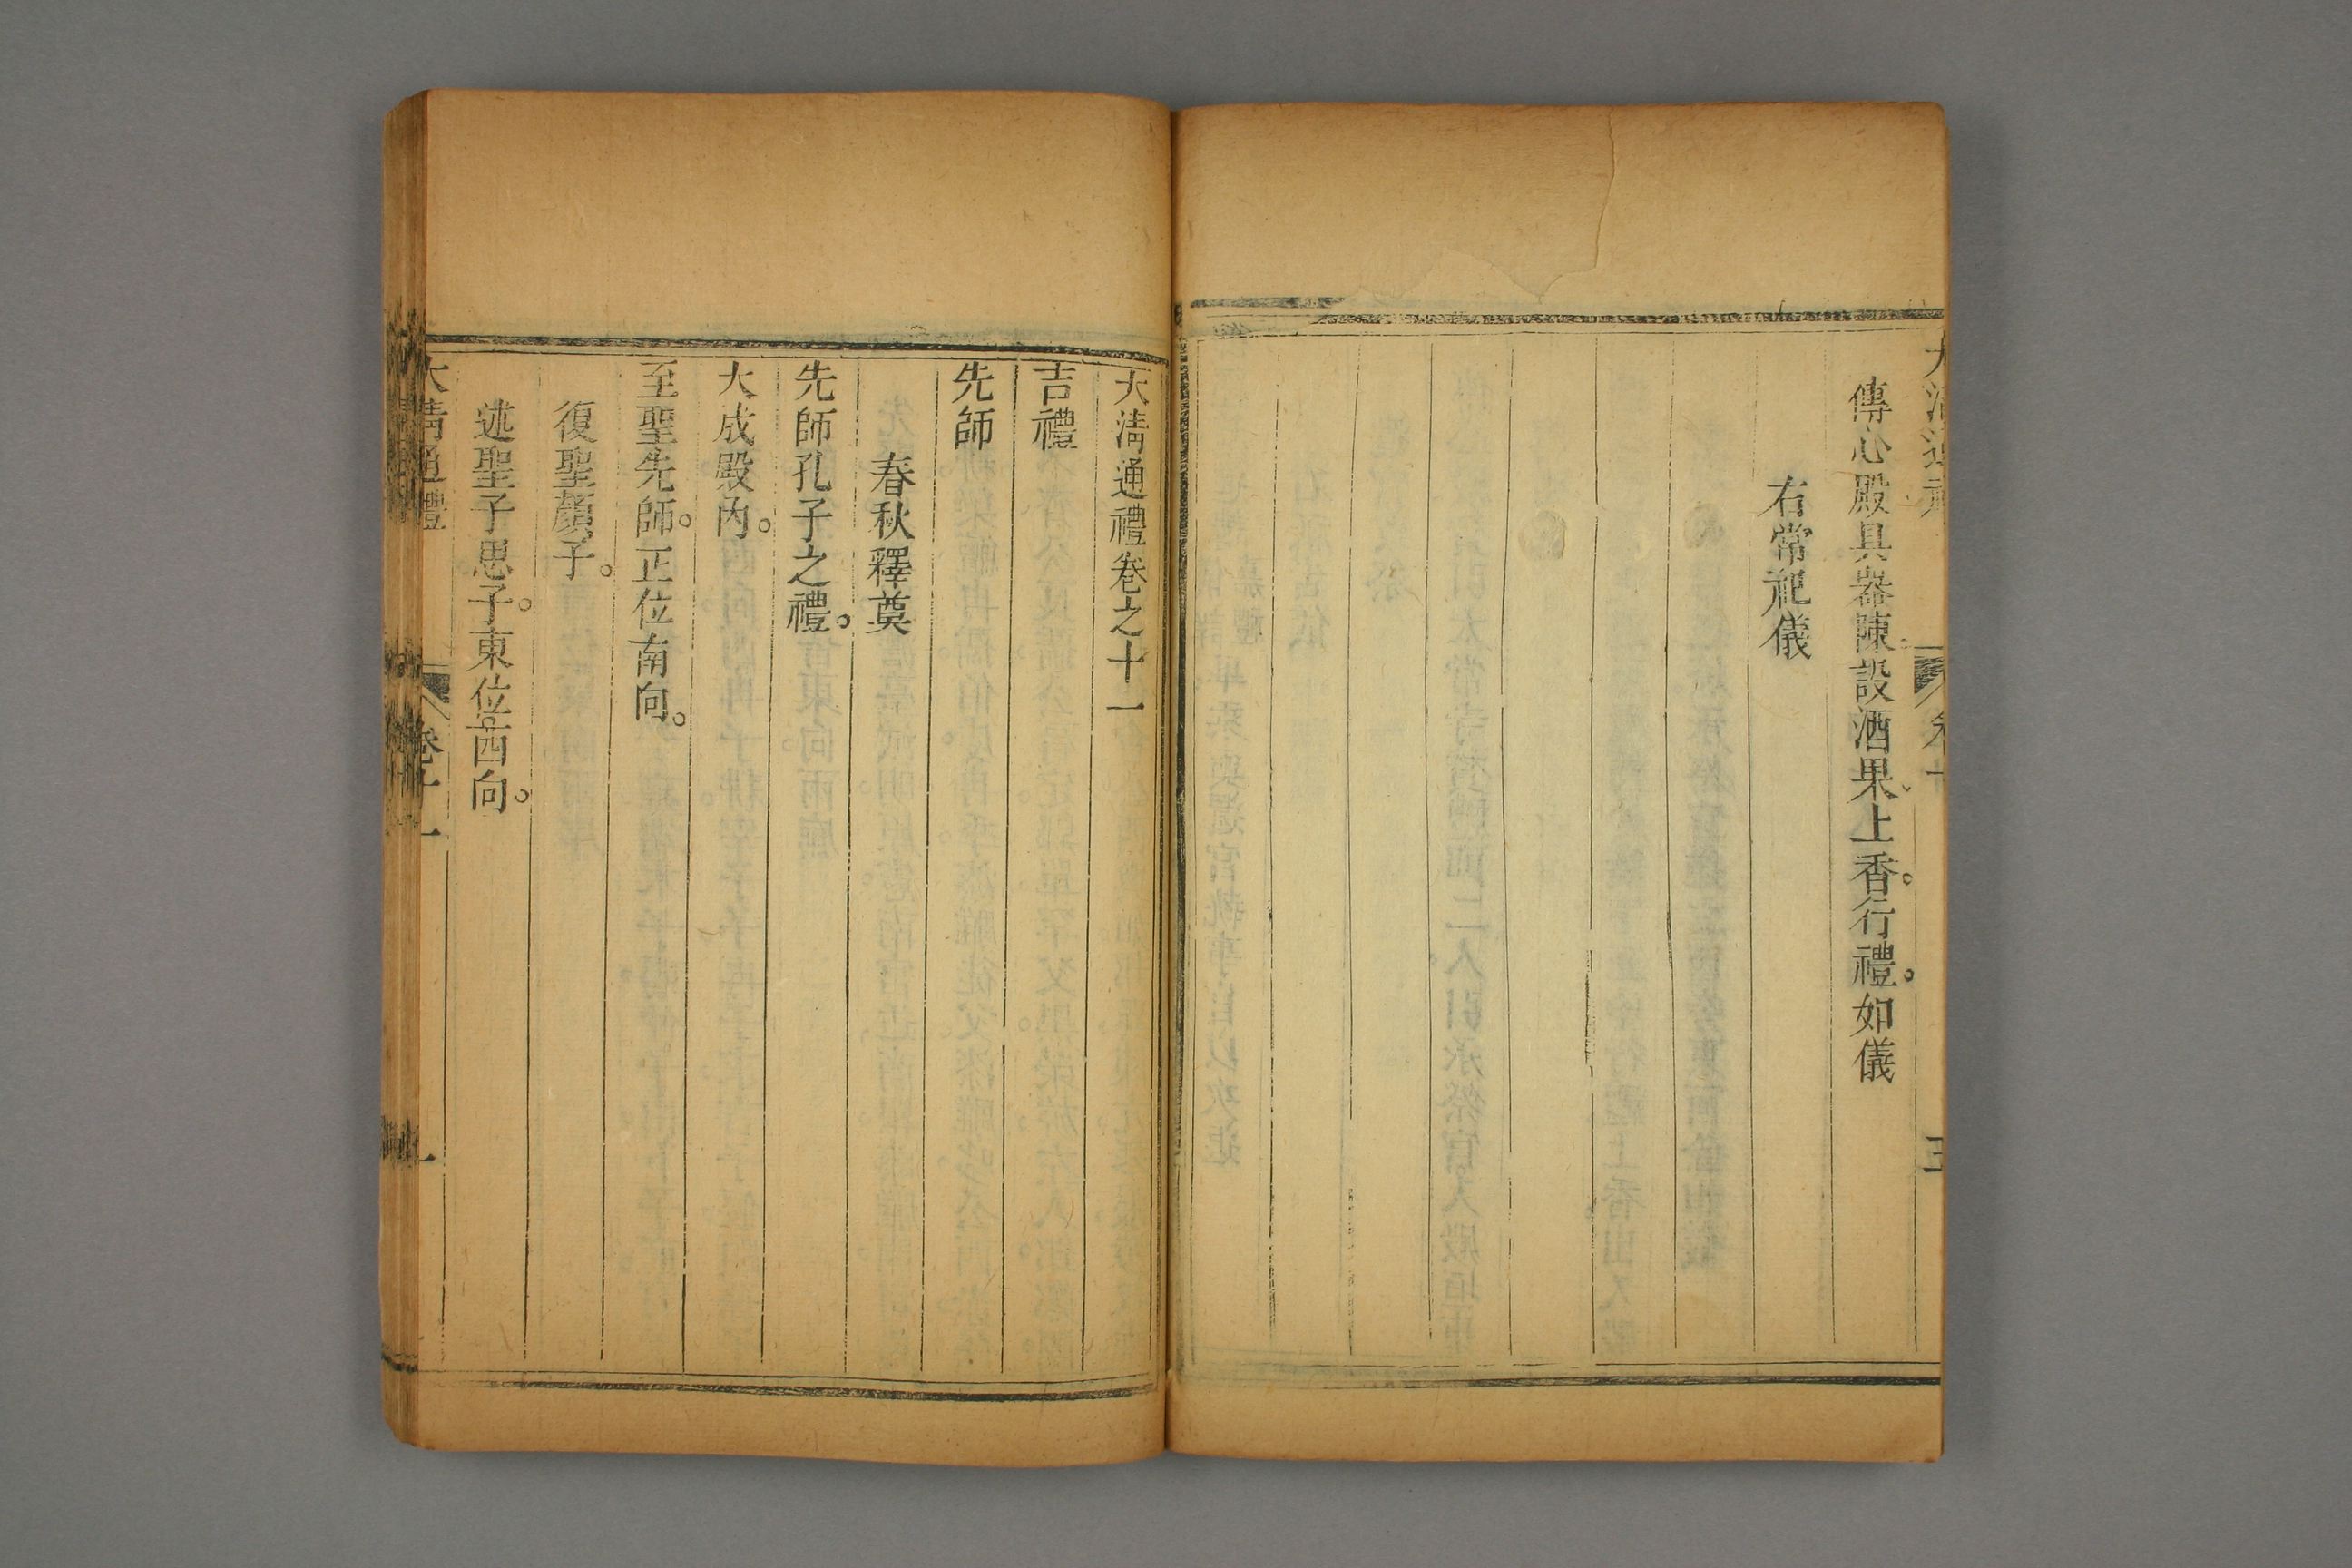 傳心殿具器陳設酒果上香。行禮。如儀
右常祀儀
大淸通禮卷之十一
吉禮
先師
春秋釋奠
先師孔子之禮。
大成殿內。
至聖先師。正位南向。
復聖顏子。
述聖子思子。東位西向。
大淸通禮
卷十一
一